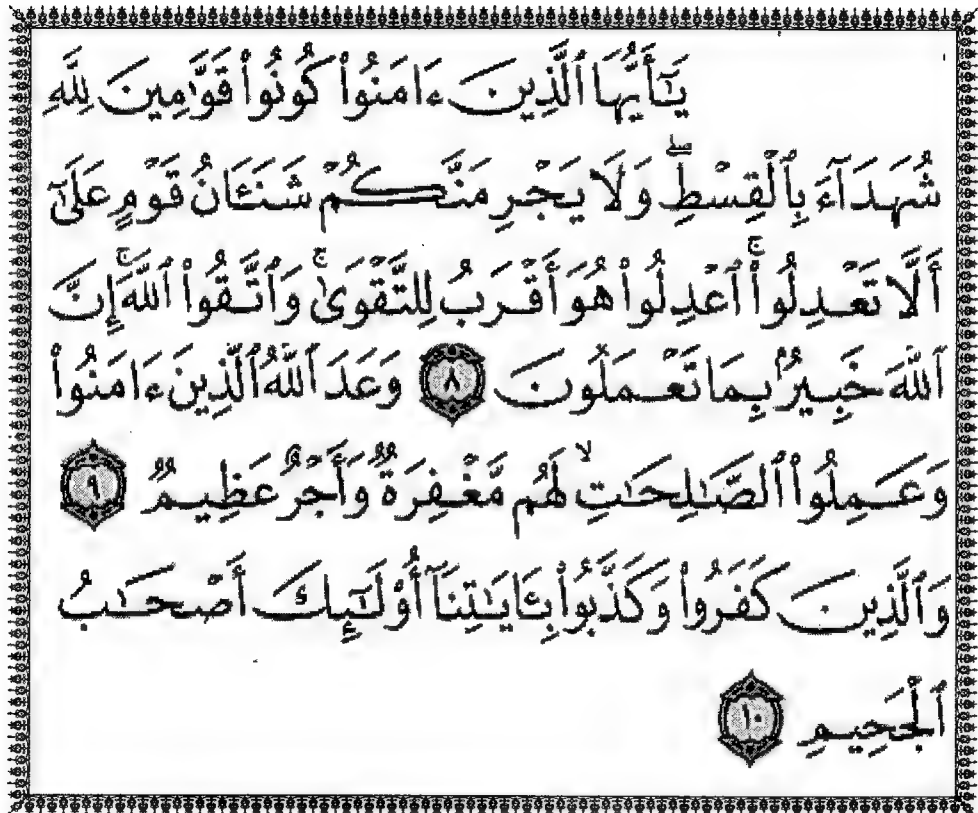 يَٰٓأَيُّهَا ٱلَّذِينَ ءَامَنُوا۟ كُونُوا۟ قَوَّٰمِينَ لِلَّهِ
شُهَدَآءَ بِٱلْقِسْطِ ۖ وَلَا يَجْرِمَنَّكُمْ شَنَـَٔانُ قَوْمٍ عَلَىٰٓ
أَلَّا تَعْدِلُوا۟ ۚ ٱعْدِلُوا۟ هُوَ أَقْرَبُ لِلتَّقْوَىٰ ۖ وَٱتَّقُوا۟ ٱللَّهَ ۚ إِنَّ
ٱللَّهَ خَبِيرٌۢ بِمَا تَعْمَلُونَ ٨ وَعَدَ ٱللَّهُ ٱلَّذِينَ ءَامَنُوا۟
وَعَمِلُوا۟ ٱلصَّٰلِحَٰتِ ۙ لَهُم مَّغْفِرَةٌ وَأَجْرٌ عَظِيمٌ ٩
وَٱلَّذِينَ كَفَرُوا۟ وَكَذَّبُوا۟ بِـَٔايَٰتِنَآ أُو۟لَٰٓئِكَ أَصْحَٰبُ
ٱلْجَحِيمِ ١٠